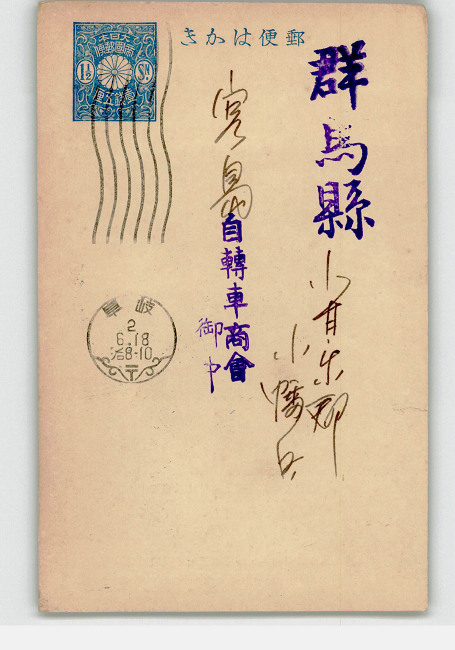 郵便はかき
大日本
帝國郵便
1½ Sn
壹錢五厘
群馬縣
甘楽郡
小幡
自轉車商會
御中
岐阜
2
6.18
8-10
〒